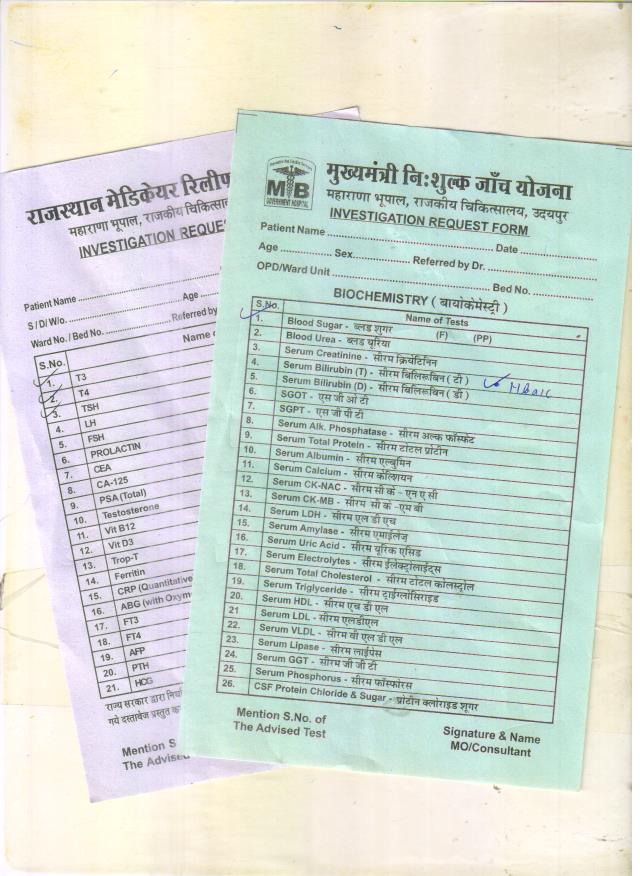 राजस्थान मेडिकेयर रिलीफ
महाराणा भूपाल, राजकीय चिकित्सा
INVESTIGATION REQUE
Patient Name
S / D/ W/o. Age
Ward No. / Bed No. Referred by
S.No. Name o
1. T3
2. T4
3. TSH
4. LH
5. FSH
6. PROLACTIN
7. CEA
8. CA-125
9. PSA (Total)
10. Testosterone
11. Vit B12
12. Vit D3
13. Trop-T
14. Ferritin
15. CRP (Quantitative
16. ABG (with Oxym
17. FT3
18. FT4
19. AFP
20. PTH
21. HCG
राज्य सरकार द्वारा
गये दस्तावेज प्रस्तुत
Mention S
The Advised
MB
GOVERNMENT HOSPITAL
मुख्यमंत्री निःशुल्क जाँच योजना
महाराणा भूपाल, राजकीय चिकित्सालय, उदयपुर
INVESTIGATION REQUEST FORM
Patient Name Date
Age Sex Referred by Dr.
OPD/Ward Unit Bed No.
BIOCHEMISTRY ( बायोकेमेस्ट्री )
S.No. Name of Tests
1. Blood Sugar - ब्लड शुगर (F) (PP)
2. Blood Urea - ब्लड यूरिया
3. Serum Creatinine - सीरम क्रियटिनिन
4. Serum Bilirubin (T) - सीरम बिलिरूबिन ( टी )
5. Serum Bilirubin (D) - सीरम बिलिरूबिन ( डी )
6. SGOT - एस जी ओ टी
7. SGPT - एस जी पी टी
8. Serum Alk. Phosphatase - सीरम अल्क फॉस्फेट
9. Serum Total Protein - सीरम टोटल प्रोटीन
10. Serum Albumin - सीरम एल्बुमिन
11. Serum Calcium - सीरम केल्शियन
12. Serum CK-NAC - सीरम सी के - एन ए सी
13. Serum CK-MB - सीरम सी के -एम बी
14. Serum LDH - सीरम एल डी एच
15. Serum Amylase - सीरम एमाईलेज्
16. Serum Uric Acid - सीरम यूरिक एसिड
17. Serum Electrolytes - सीरम ईलेक्ट्रोलाईट्स
18. Serum Total Cholesterol - सीरम टोटल कोलस्ट्रोल
19. Serum Triglyceride - सीरम ट्राईग्लोसिराइड
20. Serum HDL - सीरम एच डी एल
21 Serum LDL - सीरम एलडीएल
22. Serum VLDL - सीरम वी एल डी एल
23. Serum Lipase - सीरम लाईपेस
24. Serum GGT - सीरम जी जी टी
25. Serum Phosphorus - सीरम फॉस्फोरस
26. CSF Protein Chloride & Sugar - प्रोटीन क्लोराइड शूगर
Mention S.No. of
The Advised Test
Signature & Name
MO/Consultant